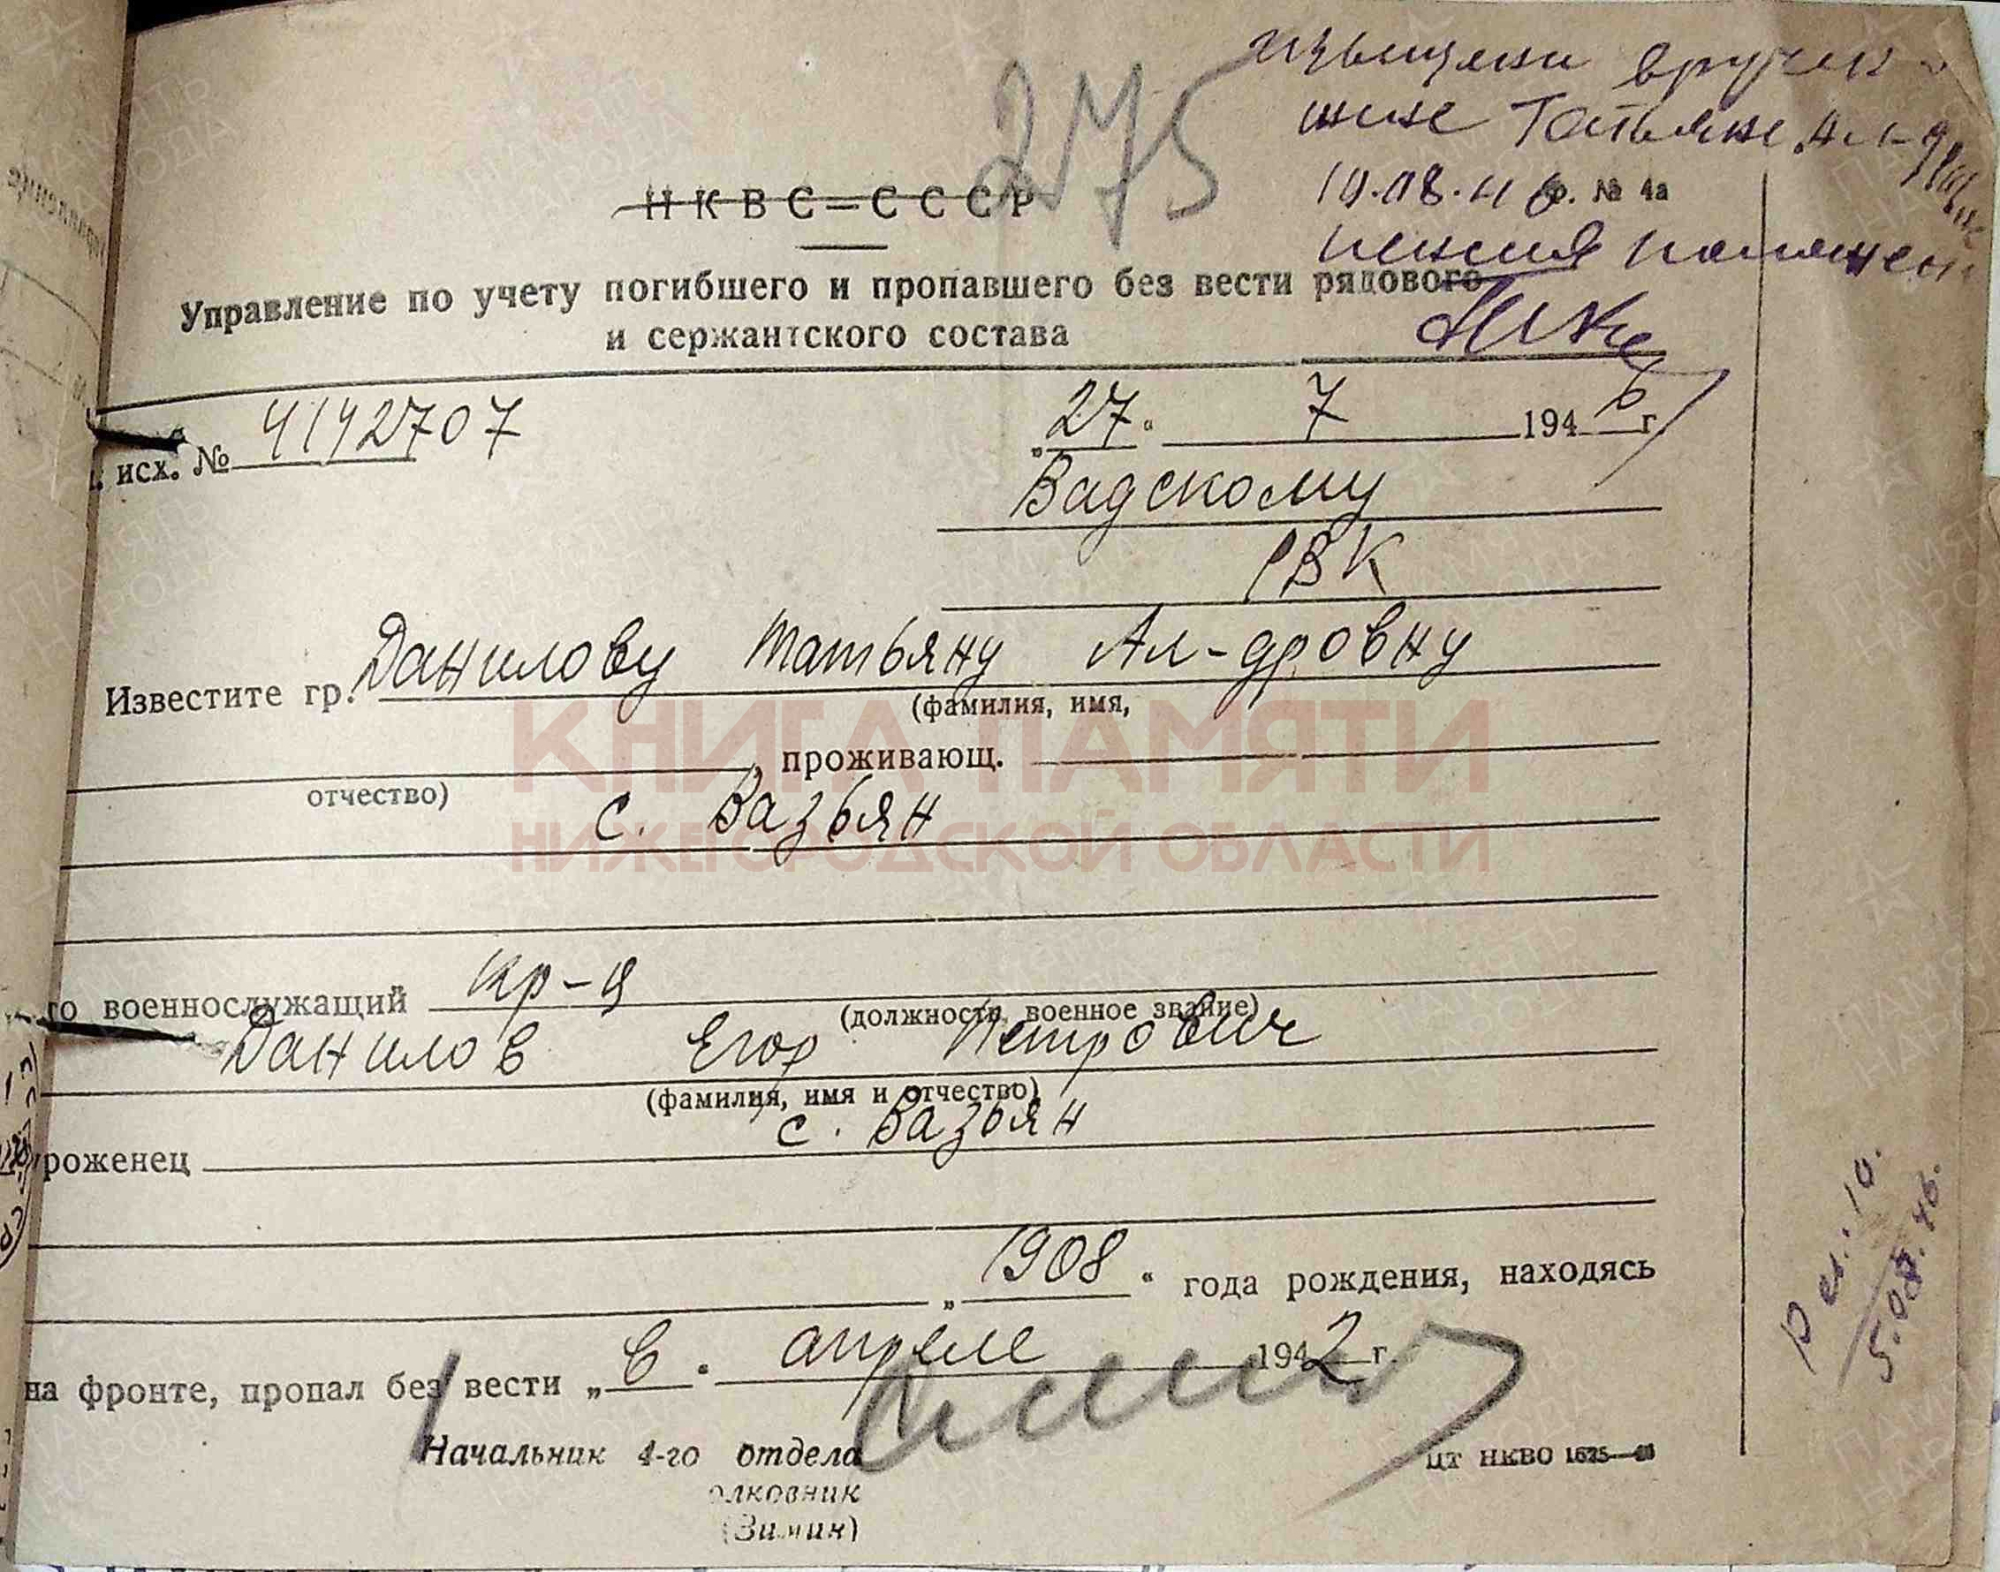 275
жене Татьяне Ал-др
10.08.46
ф. № 4а
НКВС=СССР
Управление по учету погибшего и пропавшего без вести рядового
и сержантского состава
исх. № 4142707
„27“ 7 1946 г.
Вадскому
РВК
Известите гр. Данилову Татьяну Ал-дровну
(фамилия, имя,
, проживающ.
отчество)
с. Вазьян
КНИГА ПАМЯТИ
НИЖЕГОРОДСКОЙ ОБЛАСТИ
го военнослужащий кр-ц
(должность, военное звание)
Данилов Егор Петрович
(фамилия, имя и отчество)
с. Вазьян
уроженец
„1908“ года рождения, находясь
на фронте, пропал без вести „в“ апреле 1942 г.
Начальник 4-го отдела
олковник
(Зимин)
ЦТ НКВО
5.08.46.